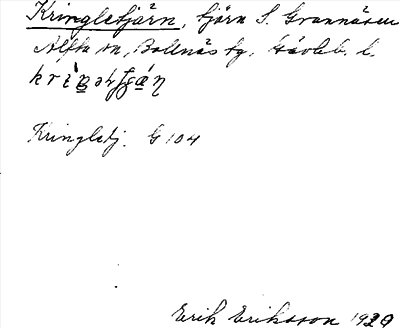 Kringletjärn, tjärn S. Grannäsen
Alfta sn, Bollnäs tg, Gävleb. l.
Kringletj. G 104
Erik Eriksson 1929